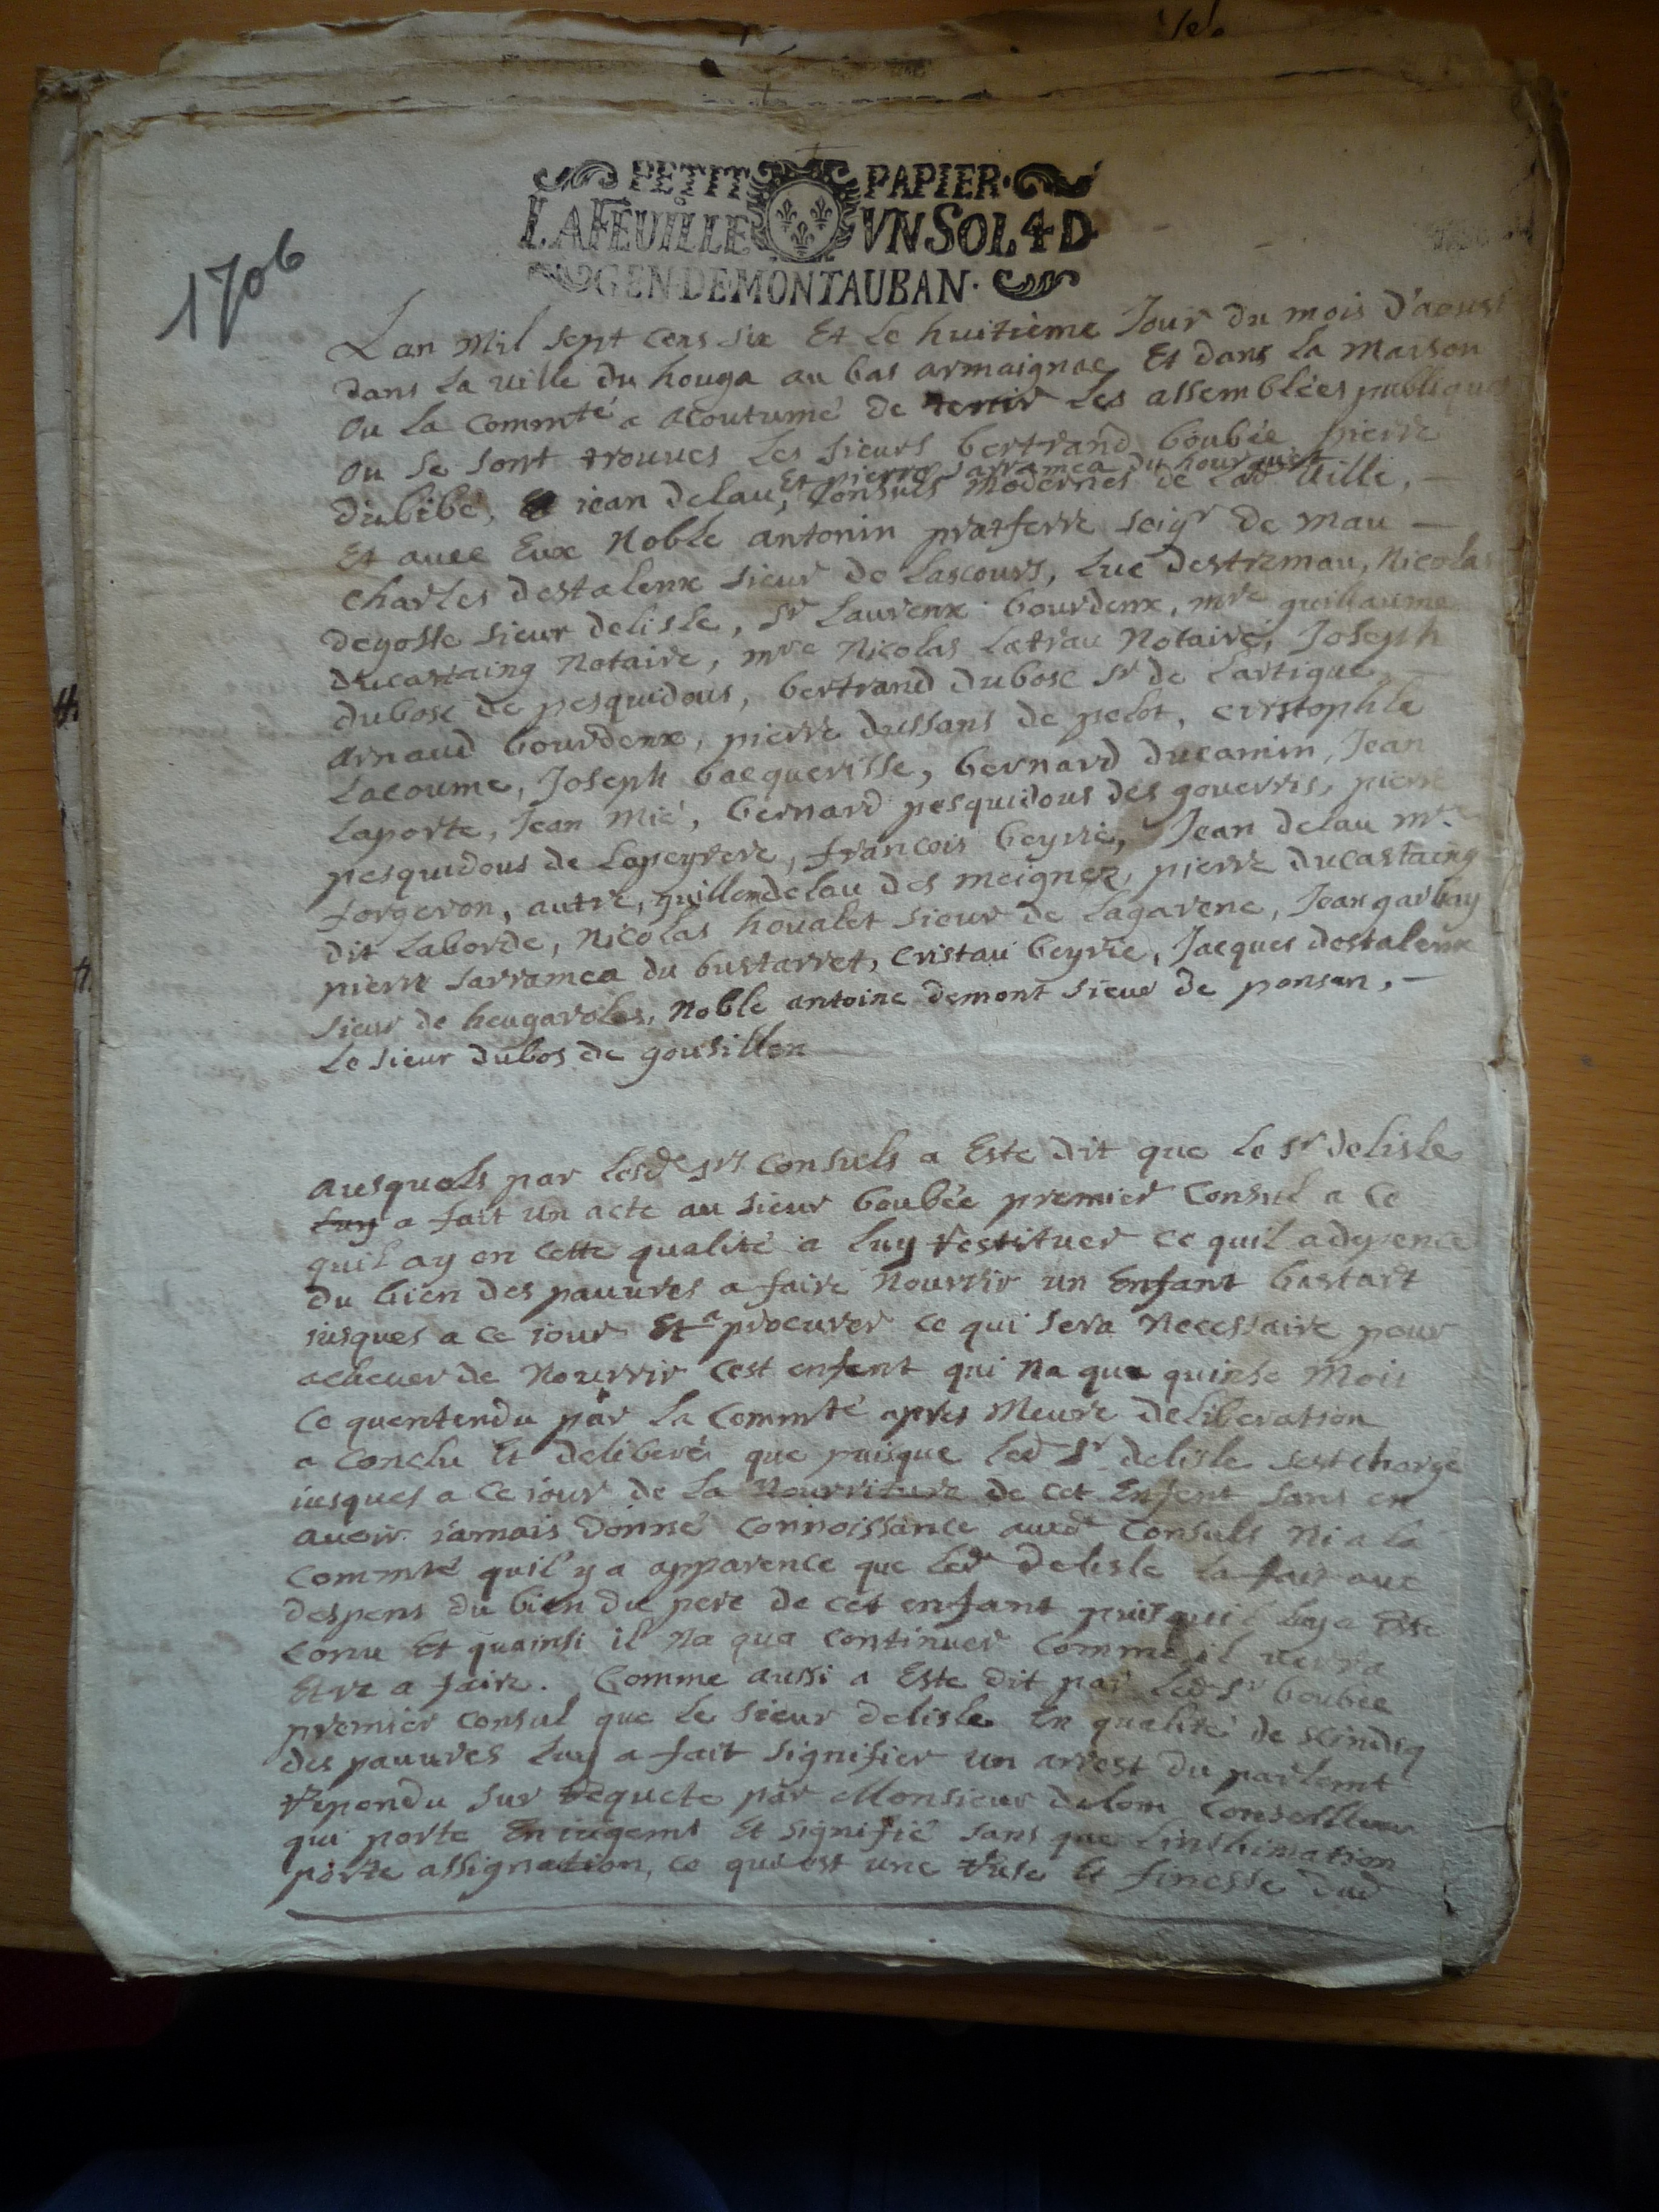 PETIT PAPIER.
LA FEUILLE VN SOL 4 D
GEN. DE MONTAUBAN.
1706
Lan mil sept cens six Et le huitième Jour du mois d'aoust
dans la ville du houga au bas armaignac Et dans la maison
ou la commté a acoutumé de tenir les assemblées publiques
ou se sont trouves les sieurs bertrand boubée pierre
Et pierre sarramea du
dubibé, jean delau, Consuls modernes de lad ville,
Et avec Eux Noble antonin pratferre seigr de mau
Charles destalenx sieur de Lascours, luc destremau, Nicolas
degosse sieur delisle, Sr Laurenx bourdenx, mre guillaume
ducastaing Notaire, mre Nicolas Latrau Notaire, Joseph
dubosc de pesquidous, bertrand dubosc Sr de Lartigue,
arnaud bourdenx, pierre dussans de pelot, cristophle
Lacoume, Joseph bacquerisse, bernard ducamin, Jean
Laporte, Jean Mié, bernard pesquidous des gouerris, pierre
pesquidous de Lapeyrere, francois beyrie, Jean delau mre
forgeron, autre, guillem delau des meignez, pierre ducastaing
dit Laborde, Nicolas houalet sieur de Lagarene, Jean garbay
pierre sarramea du bustarret, cristau beyrie, Jacques destalenx
sieur de heugaroles, Noble antoine demont sieur de ponsan,
le sieur dubos de gousillon
ausquels par lesd Srs Consuls a Este dit que le Sr delisle
luy a fait un acte au sieur boubée premier Consul a ce
quil ay en cette qualité a luy restituer ce quil a depence
du bien des pauvres a faire Nourrir un Enfant bastart
jusques a ce jour Et a procurer ce qui sera Necessaire pour
achever de Nourrir cest enfent qui Na que quinse Mois
Ce quentendu par la Commté apres Meure deliberation
a conclu Et deliberé que puisque led Sr delisle sest chargé
jusques a ce jour de la Nourriture de cet Enfent sans en
avoir jamais donné connoissance auxd Consuls Ni a la
commté quil y a apparence que led delisle la fait aux
despens du bien du pere de cet enfant puisquil luy a este
conu Et quainsi il Na qua continuer Comme il verra
Etre a faire. Comme aussi a Este dit par led Sr boubée
premier consul que le sieur delisle En qualité de scindiq
des pauvres luy a fait signifier un arrest du parlemt
repondu sur requete par Monsieur delom Conseiller
qui porte En jugemt Et signifié sans que linthimation
porte assignation, ce qui est une ruse Et finesse dud